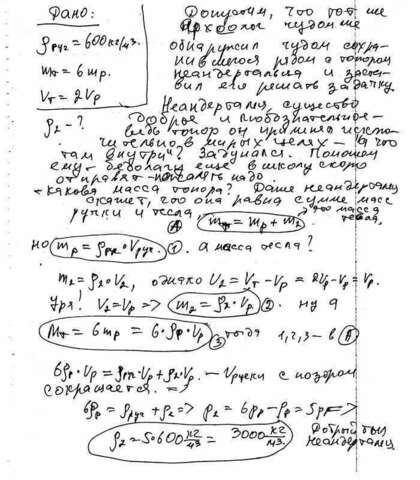 Дано:
ρруч = 600 кг/м3.
mт = 6 mр.
Vт = 2Vр
ρ2 - ?
Допустим, что тот же
археолог чудом же
обнаружил чудом сохра-
нившегося рядом с топором
неандертальца и заста-
вил его решать задачку.
Неандерталец, существо
доброе и любознательное -
ведь топор он применял исклю-
чительно в мирных целях - "а что
там внутри"? Задумался. Поможем
ему - бедолагу ещё в школу
отправлять надо
- какова масса топора? Даже неандерталец
скажет, что она равна сумме масс
ручки и тесла. А mт = mр + m2 - это масса
тесла,
но mр = ρр · Vруч. 1. а масса тесла?
m2 = ρ2 · V2, однако V2 = Vт - Vр = 2Vр - Vр = Vр.
Ура! V2 = Vр => m2 = ρ2 · Vр 2. ну а
Mт = 6 mр = 6 · ρр · Vр 3 тогда 1,2,3 - в А
6ρр · Vр = ρр · Vр + ρ2 · Vр. - Vручки с позором
сокращается. =>
6ρр = ρруч + ρ2 => ρ2 = 6ρр - ρр = 5ρр =>
ρ2 = 5·600 кг/м3 = 3000 кг/м3.
Добрый был
неандерталец